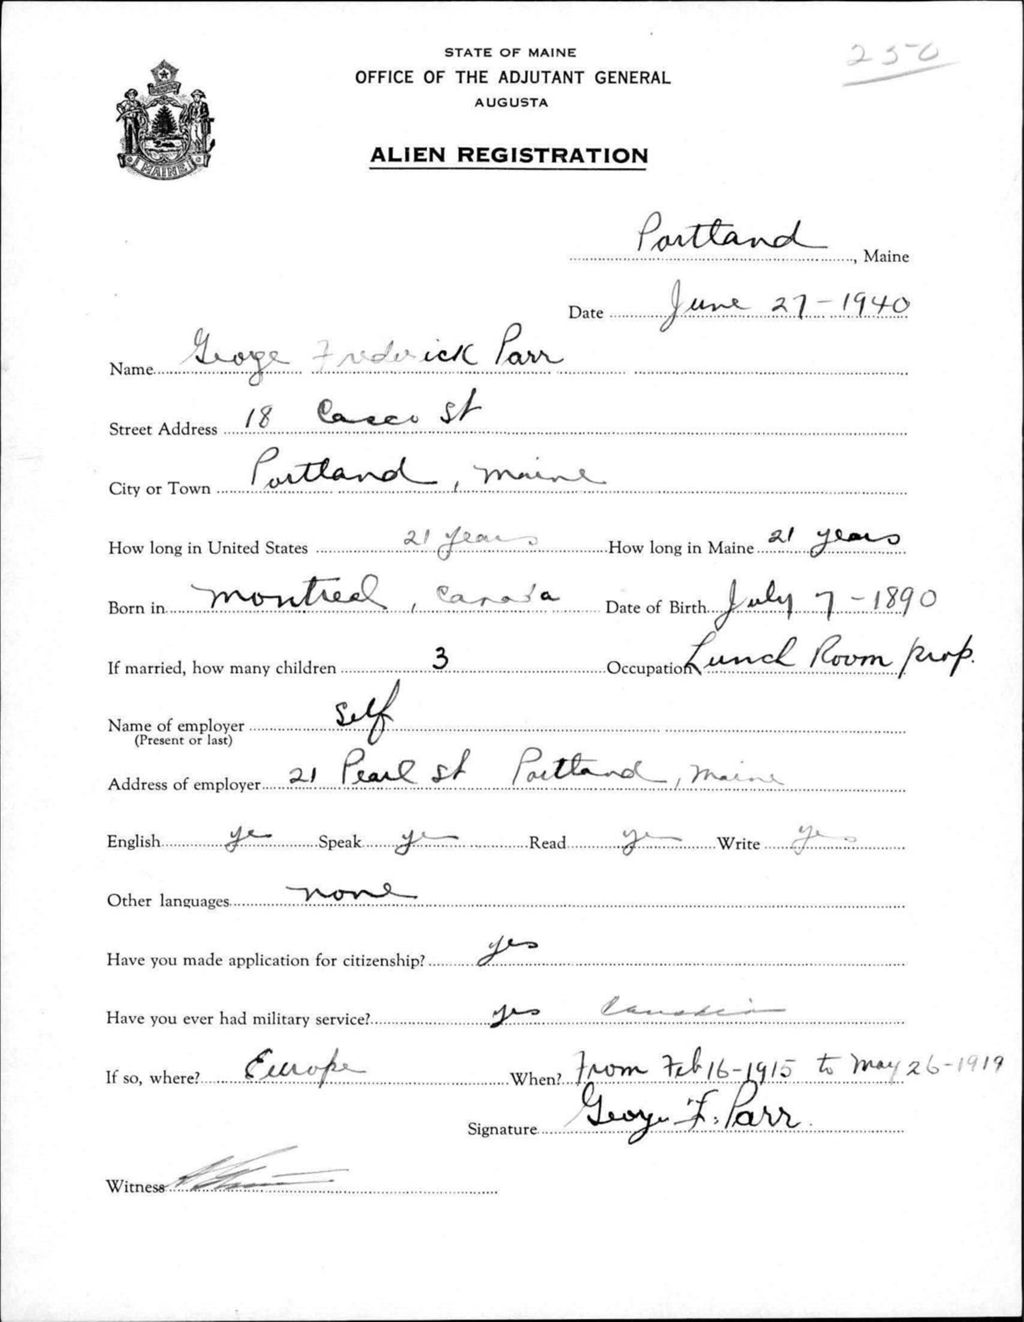 STATE OF MAINE
OFFICE OF THE ADJUTANT GENERAL
AUGUSTA
250
ALIEN REGISTRATION
MAINE
Portland, Maine
Date June 27-1940
Name George Frederick Parr
Street Address 18 Casco St
City or Town Portland, Maine
How long in United States 21 years How long in Maine 21 years
Born in Montreal, Canada Date of Birth July 7-1890
If married, how many children 3 Occupation Lunch Room prop.
Name of employer Self
(Present or last)
Address of employer 21 Pearl St Portland, Maine
English yes Speak yes Read yes Write yes
Other languages none
Have you made application for citizenship? yes
Have you ever had military service? yes Canadian
If so, where? Europe When? From Feb 16-1915 to May 26-1919
Signature George F. Parr.
Witness